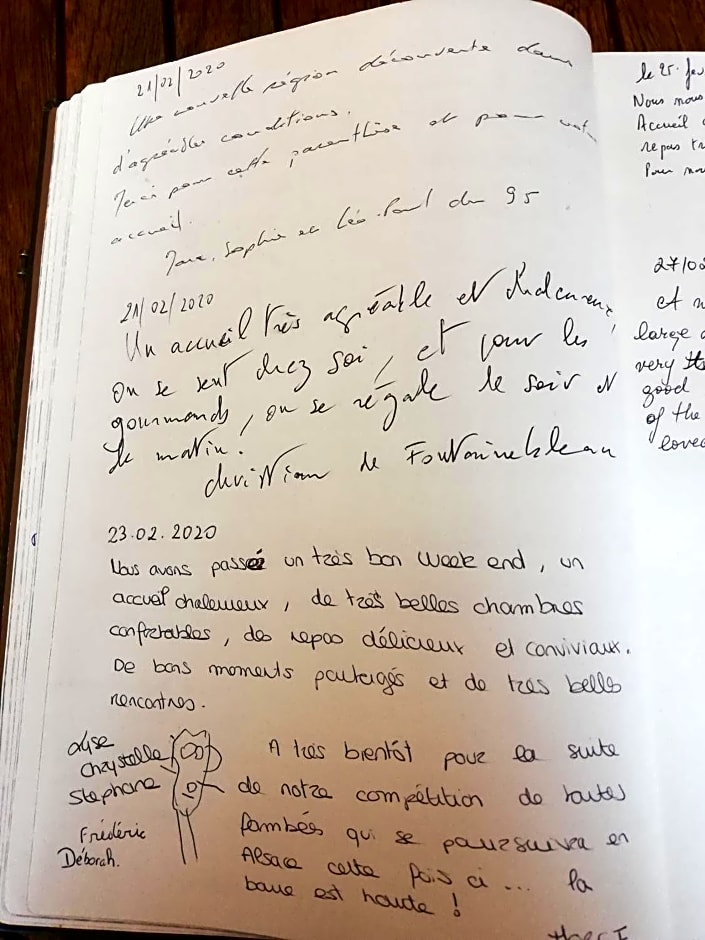 21/02/2020
Une nouvelle région découverte dans
d'agréables conditions.
Merci pour cette parenthèse et pour votre
accueil.
Sophie et Léo-Paul du 95
21/02/2020
Un accueil très agréable et chaleureux,
on se sent chez soi, et pour les
gourmands, on se régale le soir et
le matin.
Christian de Fontainebleau
23.02.2020
Nous avons passé un très bon week end, un
accueil chaleureux, de très belles chambres
confortables, des repas délicieux et conviviaux.
De bons moments partagés et de très belles
rencontres.
Chrystelle
Stephane
Frédéric
Déborah.
A très bientôt pour la suite
de notre compétition de toutes
flambées qui se poursuivra en
Alsace cette fois ci... la
barre est haute !
le 25 fev
Nous nous
Accueil
repas tr
Pour
27/02
large
very
good
of the
loved